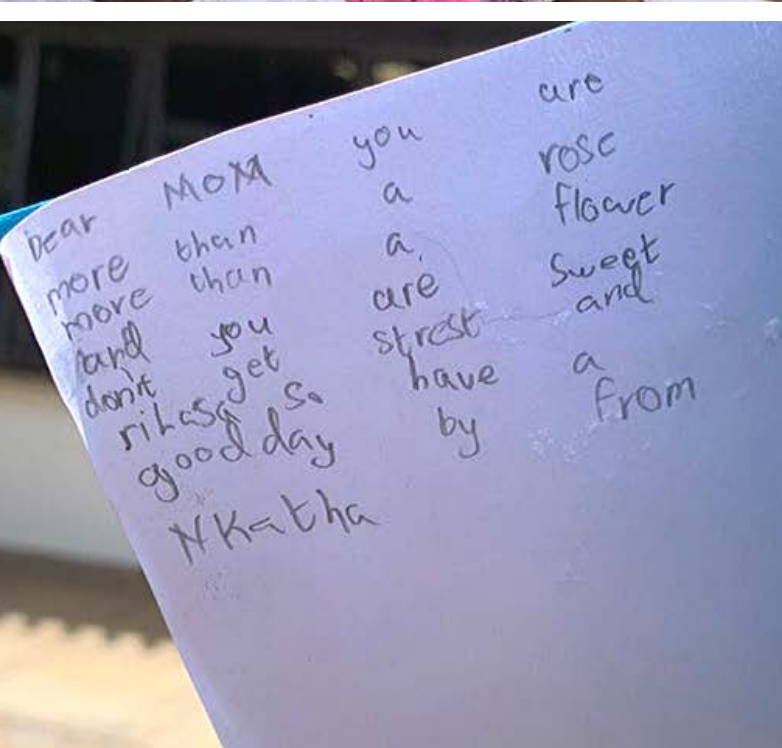 Dear MOM you are
more than a rose
more than a flower
and you are sweet
don't get strest and
rilasa so have a
good day by from
NKatha